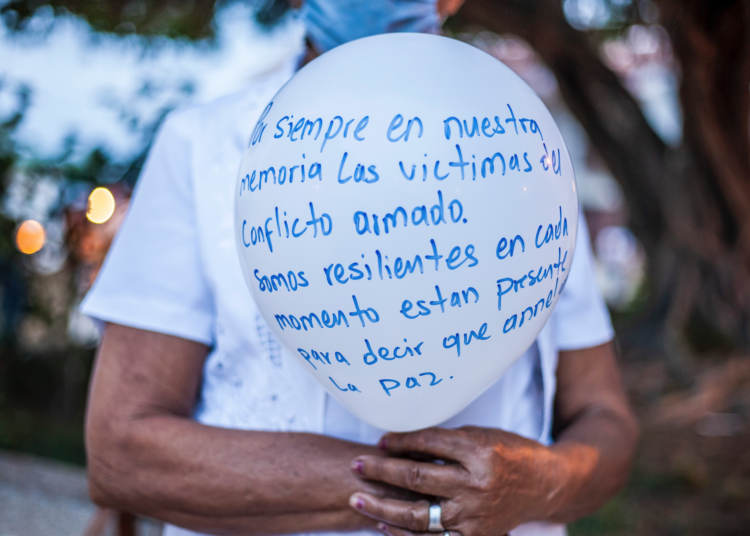 Por siempre en nuestra
memoria las victimas del
Conflicto armado.
Somos resilientes en cada
momento estan presente
para decir que
La paz.